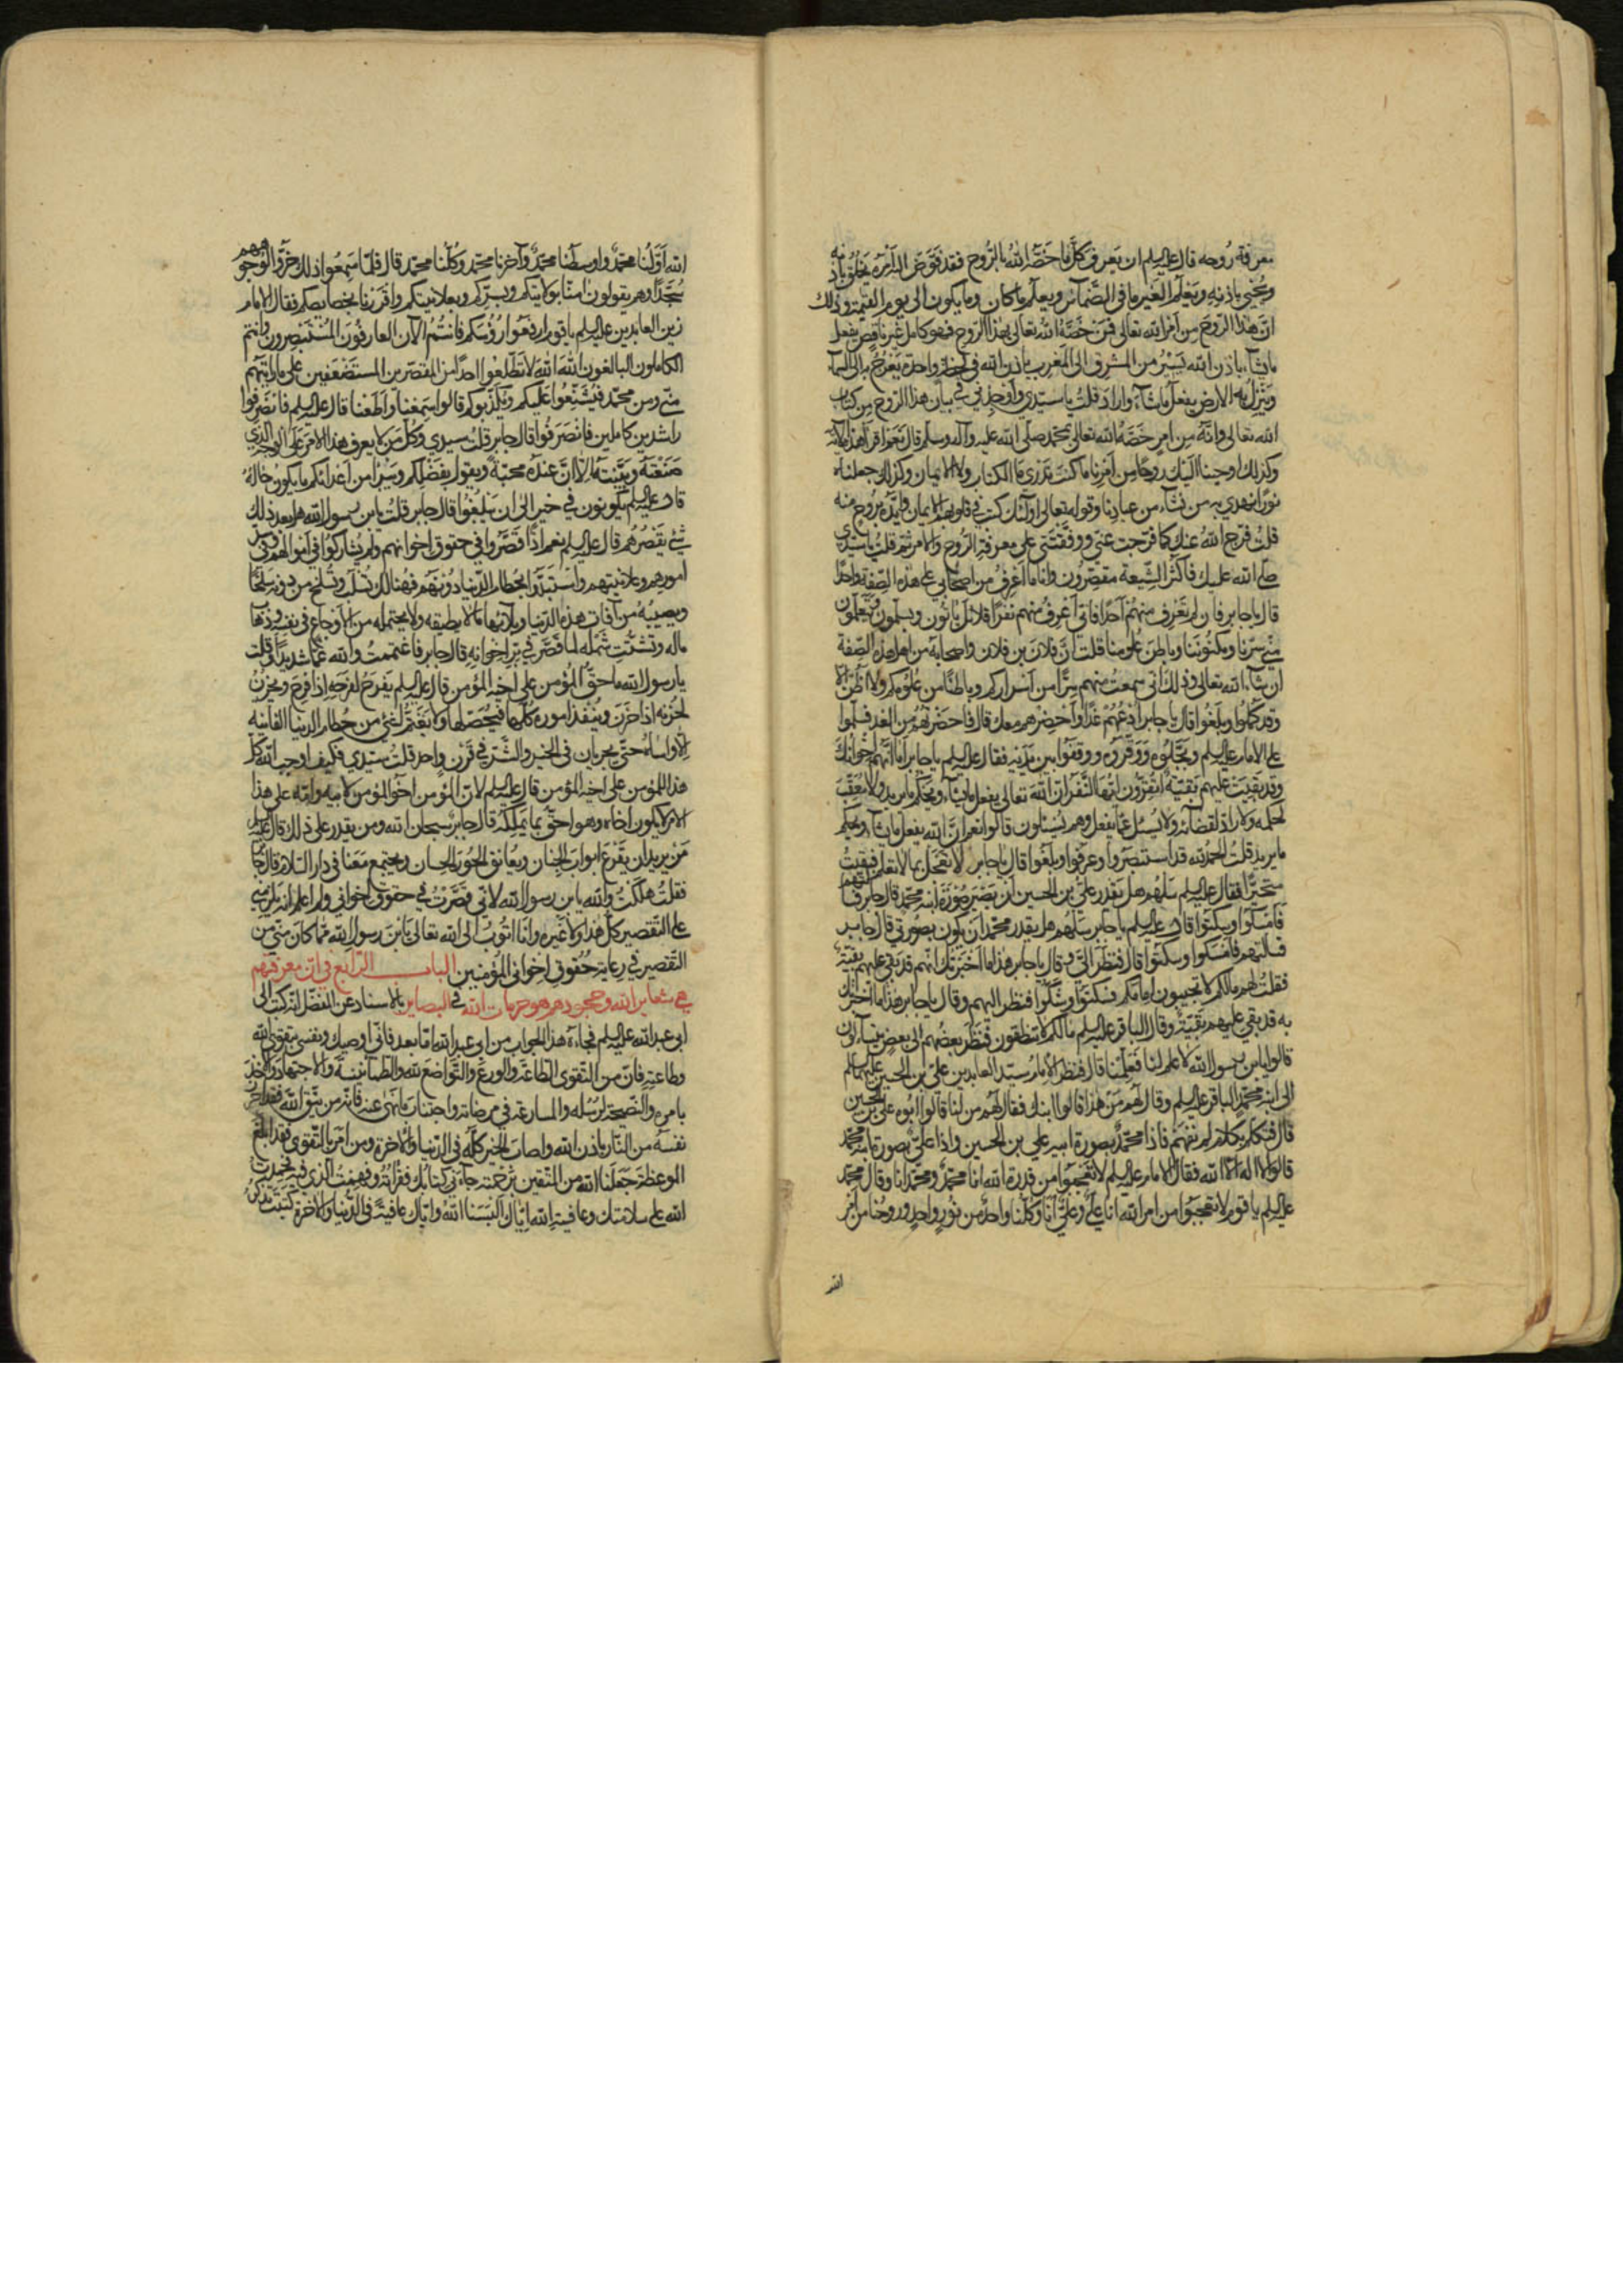 معرفة روحه قال عليه السلم ان يعرف كل ما خصه الله بالروح فقد فوض اليه امره يخلق باذنه
ويحيي باذنه ويعلم الغير ما في الضمائر ويعلم ما كان وما يكون الى يوم القيمة وذلك
ان هذا الروح من امر الله تعالى فمن خصه الله تعالى بهذا الروح فهو كامل غير ناقص يفعل
ما يشاء باذن الله يسير من المشرق الى المغرب باذن الله في لحظة واحدة يعرج به الى السماء
وينزل به الارض يفعل ما شاء واراد قلت يا سيدي واوجدني بيان هذا الروح من كتاب
الله تعالى وانه من امر خصه الله تعالى بمحمد صلى الله عليه وآله وسلم قال نعم اقرأ هذه الآية
وكذلك اوحينا اليك روحا من امرنا ما كنت تدري ما الكتاب ولا الايمان ولكن جعلناه
نورا نهدي به من نشاء من عبادنا وقوله تعالى اولئك كتب في قلوبهم الايمان وايدهم بروح منه
قلت فرج الله عنك كما فرجت عني ووفقتني على معرفة الروح والامر ثم قلت يا سيدي
صلى الله عليك فاكثر الشيعة مقصرون وانا ما اعرف من اصحابي على هذه الصفة واحدا
قال يا جابر فان لم تعرف منهم احدا فاني اعرف منهم نفرا قلائل يأتون ويسلمون ويتعلمون
مني سرنا ومكنوننا وباطن علومنا قلت ان فلان بن فلان واصحابه من اهل هذه الصفة
ان شاء الله تعالى وذلك اني سمعت منهم سرا من اسراركم وباطنا من علومكم ولا اظن الا
وقد كملوا وبلغوا قال يا جابر ادعهم غدا واحضرهم معك قال فاحضرتهم من الغد فسلموا
على الامام عليه السلم وبجلوه ووقروه ووقفوا بين يديه فقال عليه السلم يا جابر اما انهم اخوانك
وقد بقيت عليهم بقية اتقرون ايها النفر ان الله تعالى يفعل ما يشاء ويحكم ما يريد ولا معقب
لحكمه ولا راد لقضائه ولا يسئل عما يفعل وهم يسئلون قالوا نعم ان الله يفعل ما يشاء ويحكم
ما يريد قلت الحمد لله قد استبصروا وعرفوا وبلغوا قال يا جابر لا تعجل بما لا تعلم فبقيت
متحيرا فقال عليه السلم سلهم هل يقدر علي بن الحسين ان يصير صورة ابنه محمد قال جابر فسألتهم
فامسكوا وسكتوا قال عليه السلم يا جابر سلهم هل يقدر محمد ان يكون بصورتي قال جابر
فسألتهم فامسكوا وسكتوا قال فنظر الي وقال يا جابر هذا ما اخبرتك انهم قد بقي عليهم بقية
فقلت لهم مالكم لا تجيبون امامكم فسكتوا وشكوا فنظر اليهم وقال يا جابر هذا ما اخبرتك
به قد بقي عليهم بقية وقال الباقر عليه السلم مالكم لا تنطقون فنظر بعضهم الى بعض يتسائلون
قالوا يا بن رسول الله لا علم لنا فعلمنا قال فنظر الامام سيد العابدين علي بن الحسين عليهما السلم
الى ابنه محمد الباقر عليه السلم وقال لهم من هذا قالوا ابنك فقال لهم من انا قالوا ابوه علي بن الحسين
قال فتكلم بكلام لم نفهم فاذا محمد بصورة ابيه علي بن الحسين واذا علي بصورة ابنه محمد
قالوا لا اله الا الله فقال الامام عليه السلم لا تعجبوا من قدرة الله انا محمد ومحمد انا وقال محمد
عليه السلم يا قوم لا تعجبوا من امر الله انا علي وعلي انا وكلنا واحد من نور واحد وروحنا من امر
الله
الله اولنا محمد واوسطنا محمد وآخرنا محمد وكلنا محمد قال فلما سمعوا ذلك خروا لوجوههم
سجدا وهم يقولون آمنا بولايتكم وبسركم وبعلانيتكم واقررنا بخصائصكم فقال الامام
زين العابدين عليه السلم يا قوم ارفعوا رؤسكم فانتم الآن العارفون المستبصرون وانتم
الكاملون البالغون الله الله لا تطلعوا احدا من المقصرين المستضعفين على ما رايتم
مني ومن محمد فيشنعوا عليكم ويكذبوكم قالوا سمعنا واطعنا قال عليه السلم فانصرفوا
راشدين كاملين فانصرفوا قال جابر قلت سيدي وكل من لا يعرف هذا الامر على الوجه الذي
صنعته وبينته الا ان عنده محبة ويقول بفضلكم ويتبرا من اعدائكم ما يكون حاله
قال عليه السلم يكونون في خير الى ان يبلغوا قال جابر قلت يا بن رسول الله هل بعد ذلك
شئ يقصرهم قال عليه السلم نعم اذا قصروا في حقوق اخوانهم ولم يشاركوا في اموالهم وفي سر
امورهم وعلانيتهم واستبدوا بحطام الدنيا دونهم فهنالك تسلب وتسلخ من دونه سلخا
ويصيبه من آفات هذه الدنيا وبلائها ما لا يطيقه ولا يحتمله من الاوجاع في نفسه وذهاب
ماله وتشتت شمله لما قصر في بر اخوانه قال جابر فاغتممت والله غما شديدا وقلت
يا رسول الله ما حق المؤمن على اخيه المؤمن قال عليه السلم يفرح لفرحه اذا فرح ويحزن
لحزنه اذا حزن وينفذ اموره كلها فيحصلها ولا يغتم لشئ من حطام الدنيا الفانية
الا واساه حتى يجريان في الخير والشر في قرن واحد قلت سيدي فكيف اوجب الله كل
هذا للمؤمن على اخيه المؤمن قال عليه السلم لان المؤمن اخو المؤمن لابيه وامه على هذا
الامر لا يكون اخاه وهو احق بما يملكه قال جابر سبحان الله ومن يقدر على ذلك قال عليه السلم
من يريد ان يقرع ابواب الجنان ويعانق الحور الحسان ويجتمع معنا في دار السلام قال جابر
فقلت هلكت والله يا بن رسول الله لاني قصرت في حقوق اخواني ولم اعلم انه يلزمني
على التقصير كل هذا ولا غيره وانا اتوب الى الله تعالى يا بن رسول الله مما كان مني من
التقصير في رعاية حقوق اخواني المؤمنين الباب الرابع في ان معرفتهم
هي شعاير الله وجحودهم هو حرمات الله في البصاير بالاسناد عن المفضل انه كتب الى
ابي عبد الله عليه السلم فجاءه هذا الجواب من ابي عبد الله اما بعد فاني اوصيك ونفسي بتقوى الله
وطاعته فان من التقوى الطاعة والورع والتواضع لله والطمأنينة والاجتهاد والاخذ
بامره والنصيحة لرسله والمسارعة في مرضاته واجتناب ما نهى عنه فانه من يتق الله فقد احرز
نفسه من النار باذن الله واصاب الخير كله في الدنيا والآخرة ومن امر بالتقوى فقد ابلغ
الموعظة جعلنا الله من المتقين برحمته جاءني كتابك فقرأته وفهمت الذي فيه فحمدت
الله على سلامتك وعافية الله اياك البسنا الله واياك عافية في الدنيا والآخرة كتبت تذكر